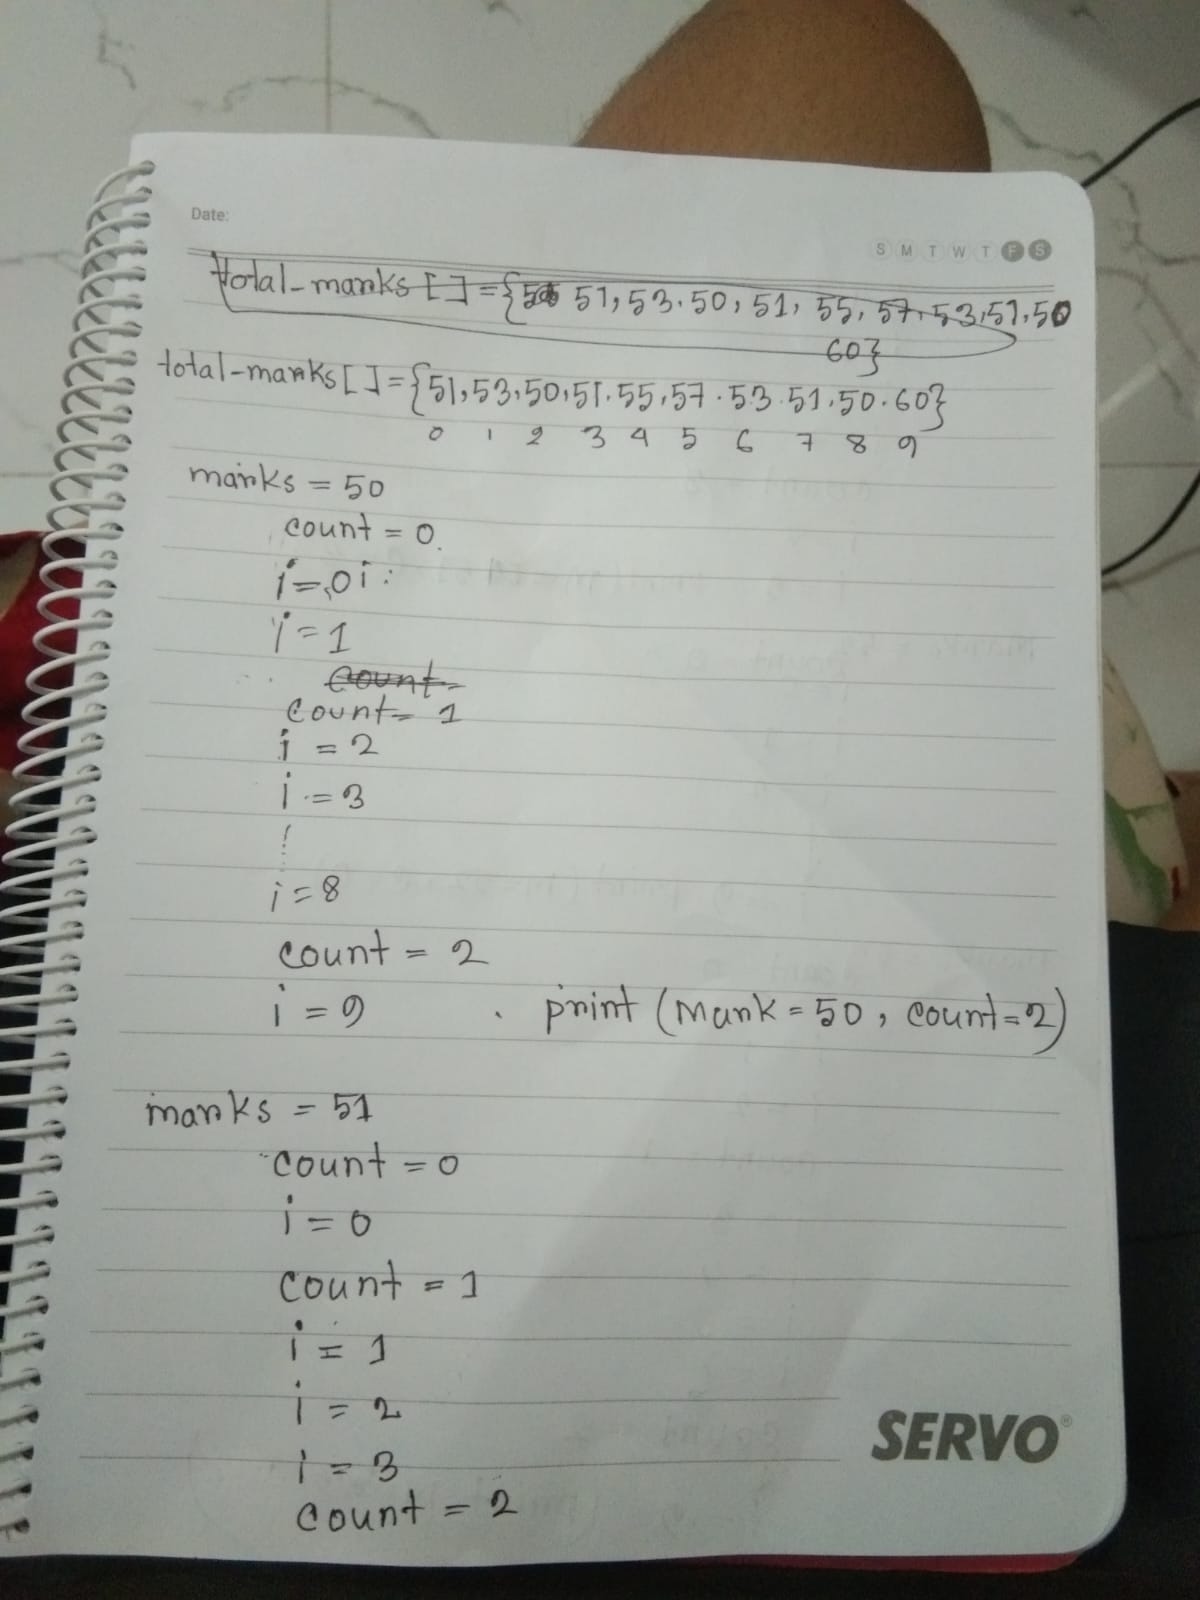 Date:
S M T W T F S
total-marks [ ] = { 51, 53. 50, 51, 55, 57. 53, 51, 50
60}
total-marks [ ] = {51, 53, 50, 51. 55, 57. 53. 51. 50. 60}
0 1 2 3 4 5 6 7 8 9
marks = 50
count = 0.
i = 0 i :
i = 1
count =
count = 1
i = 2
i = 3
i = 8
count = 2
i = 9 . print (Mark = 50, count = 2)
marks = 51
count = 0
i = 0
count = 1
i = 1
i = 2
i = 3
count = 2
SERVO®